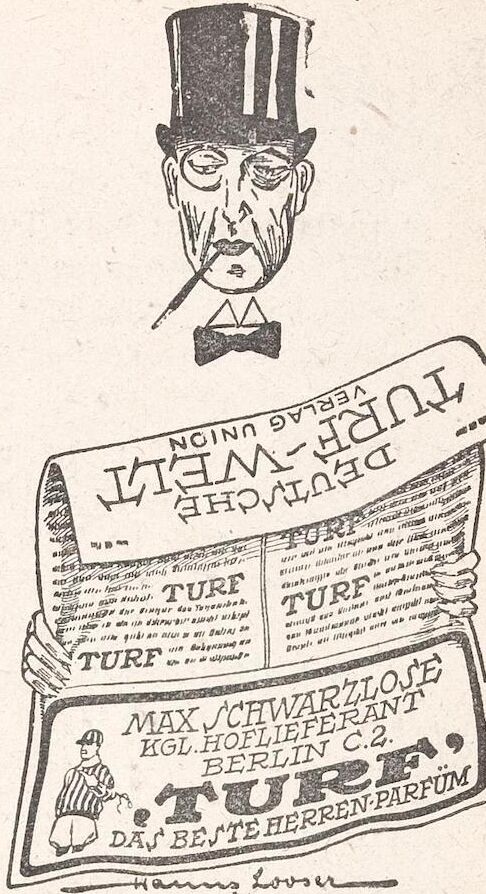 DEUTSCHE
TURF-WELT
VERLAG UNION
TURF
TURF
TURF
TURF
MAX SCHWARZLOSE
KGL. HOFLIEFERANT
BERLIN C.2.
‚TURF’
DAS BESTE HERREN-PARFÜM
Hanns Looser